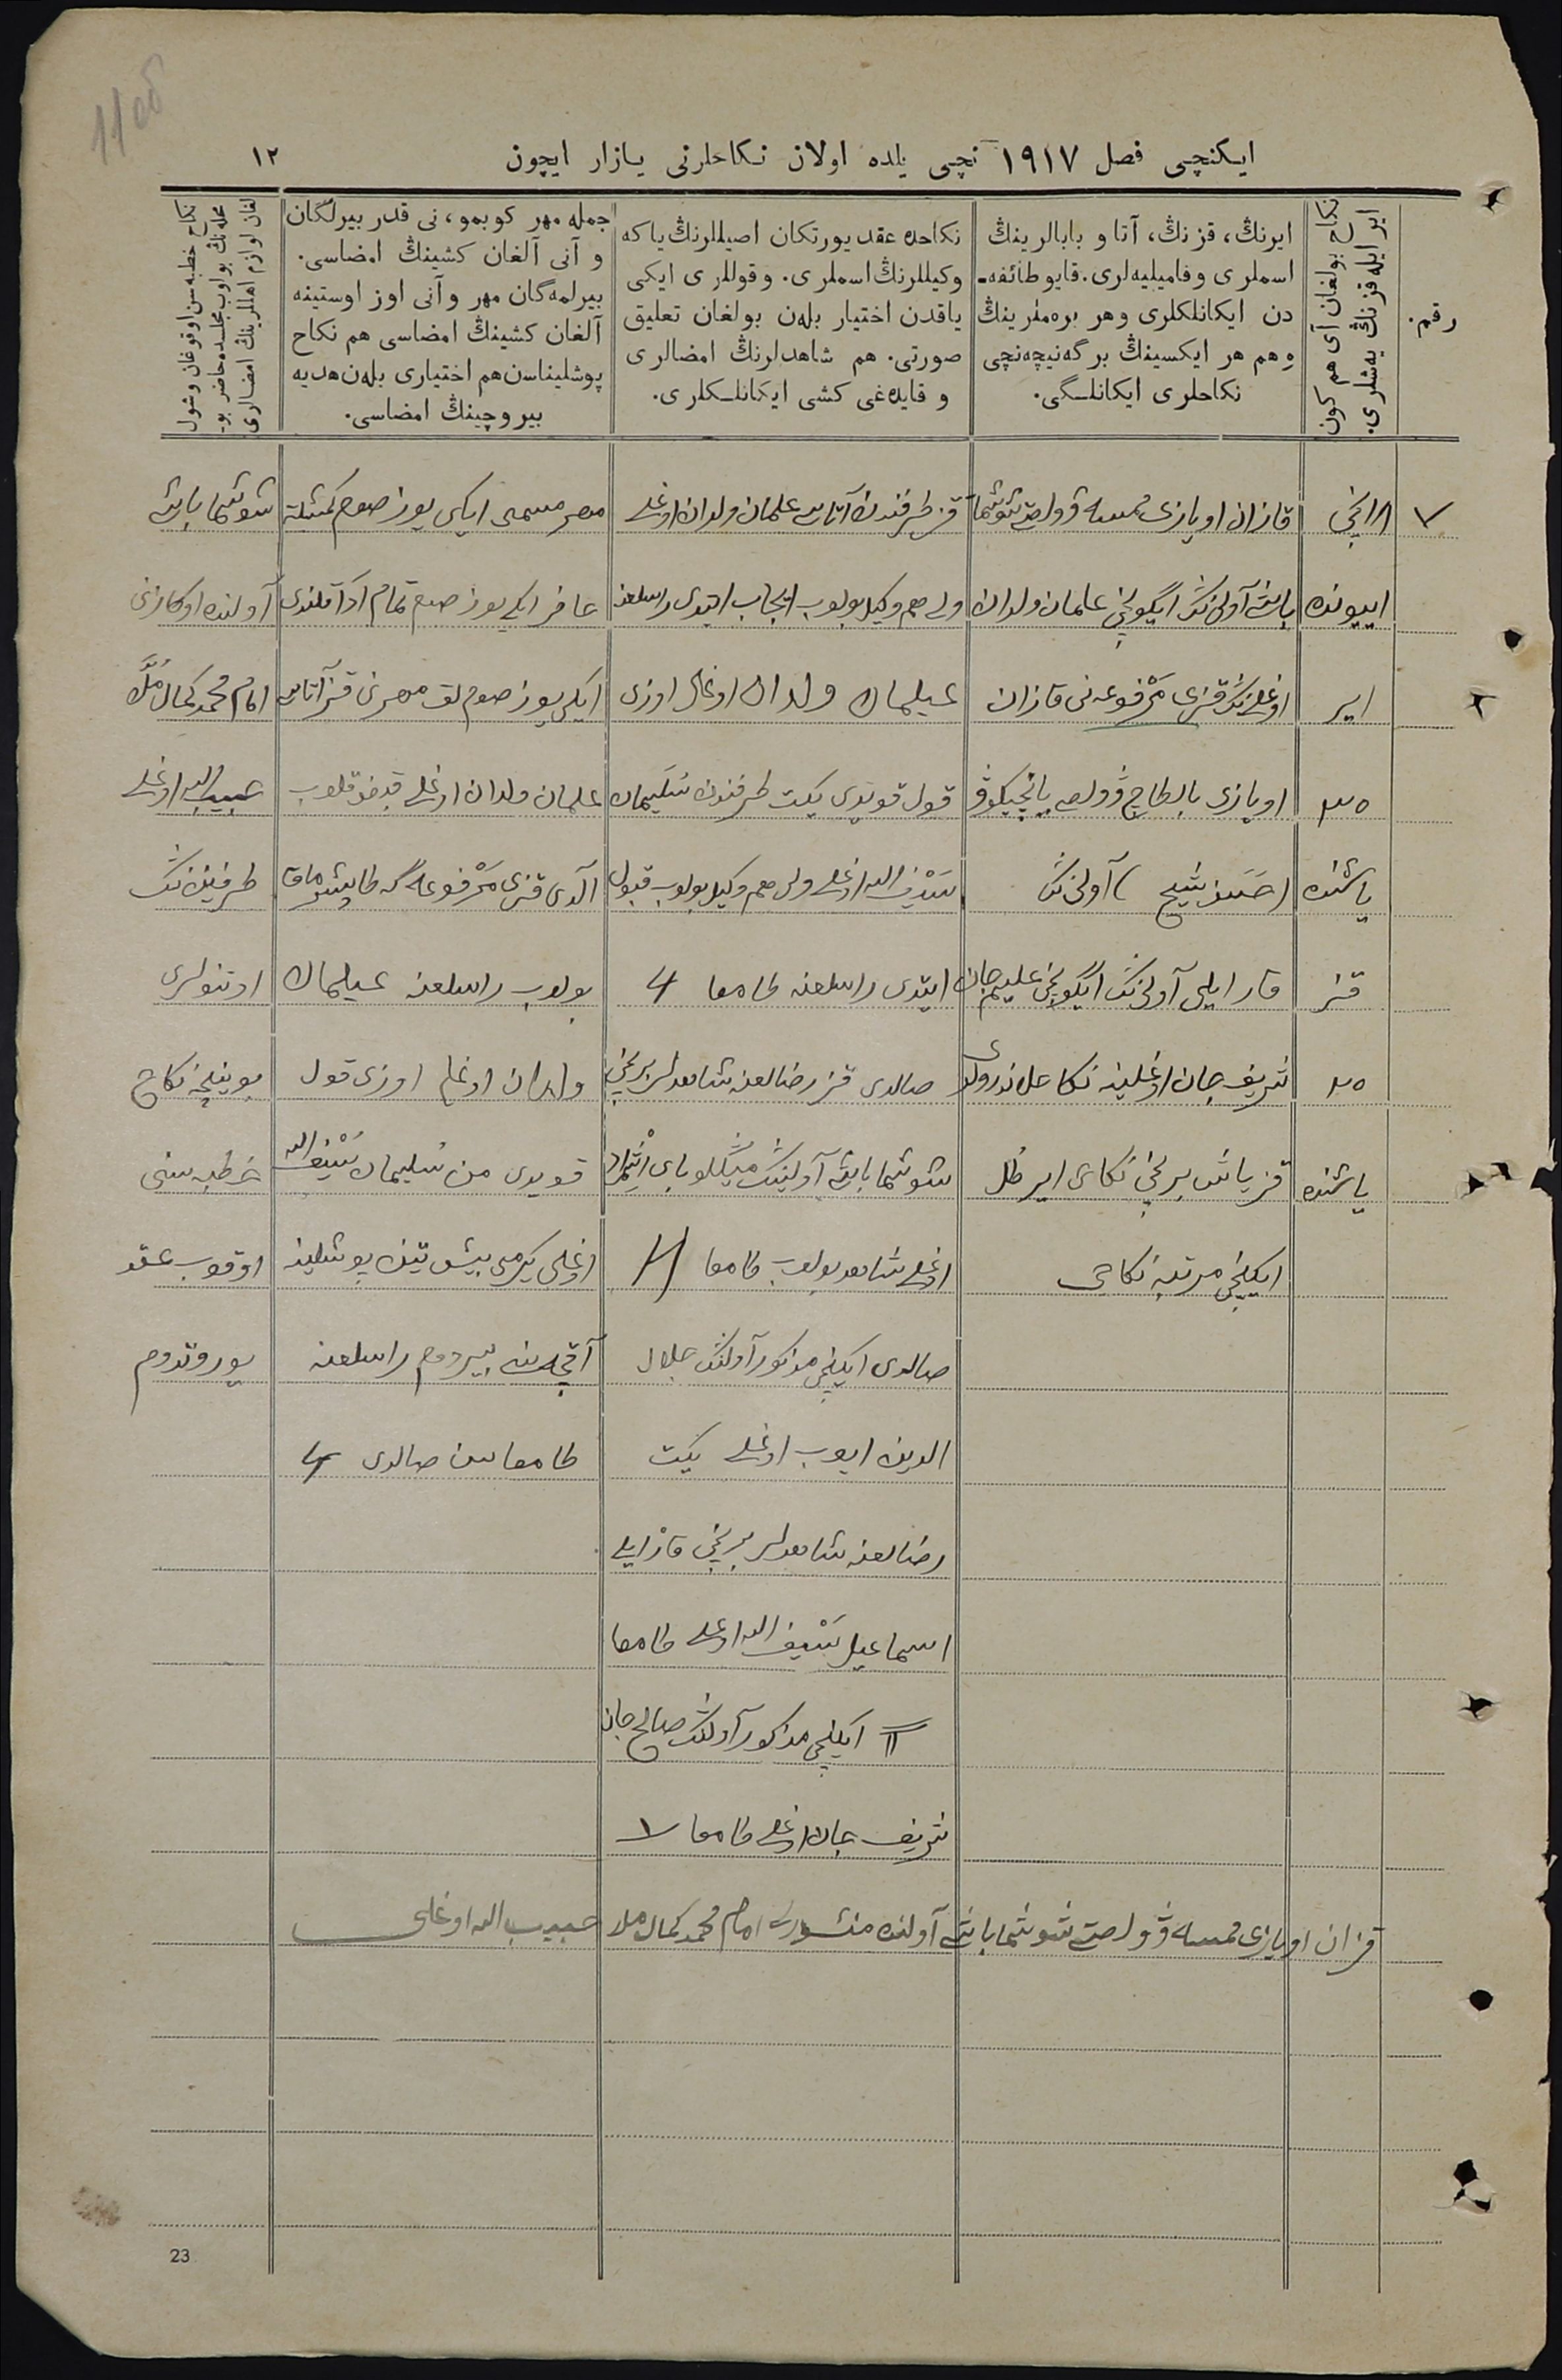 11 об
ایكنچی فصل ١٩١٧ نچی یلده اولان نكاحلرنی یازار ایچون
١٢
رقم.
نكاح بولغان آی هم كون
ایر ایله قزنڭ یه‌شلری.
ایرنڭ، قزنڭ، آتا و بابالرینڭ
اسملری و فامیلیه‌لری. قایو طائفه‌ـ
دن ایكانلكلری وهر بره‌ملرینڭ
ه هم هر ایكسینڭ برگه‌نیچه‌نچی
نكاحلری ایكانلـگی.
نكاحده عقد یورتكان اصیللرنڭ یاكه
وكیللرنڭ اسملری. و قوللری ایكی
یاقدن اختیار بله‌ن بولغان تعلیق
صورتی. هم شاهدلرنڭ امضالری
و قایده‌غی كشی ایكانلـكلری.
جمله مهر كوبمو، نی قدر بیرلگان
و آنی آلغان كشینڭ امضاسی.
بیرلمه‌گان مهر و آنی اوز اوستینه
آلغان كشینڭ امضاسی هم نكاح
پوشلیناسن هم اختیاری بله‌ن هدیه
بیروچینڭ امضاسی.
نكاح خطبه سن اوقوغان وشول
محله‌نڭ بولوب مجلسده حاضر بو۔
لغان اوازم اهللرینڭ امضالری
٧
١٨ انچی
اییونده
ایر
٣٥
یاشنده
قز
٢٥
یاشنده
قازان اویازی ممسه ڤولصتی شوشما
باشی آولی‌نڭ ایگونچی علمان ولدان
اوغلی‌نڭ قزی مرفوعه‌نی قازان
اویازی بالطاچ ڤولصی یانچیكوڤ
(حسن شیخ) آولی‌نڭ
قار ایلی آولی‌نڭ ایگونچی علیم جان
شریف جان اوغلینه نكاحلاندرولدی
قز یاش برنچی نكاحی ایر طل
ایكنچی مرتبه نكاحی
قز طرفندن آتاسی علمان ولدان اوغلی
ولی هم وكیل بولوب ایجاب ایتدی راسلغنه
عیلمان ولدان اوغلی اوزی
قول قویدی یكت طرفندن سلیمان
سیف الله اوغلی ولی هم وكیل بولوب قبول
ایتدی راسلغنه طامغا
صالدی قز رضالغنه شاهدلر برنچی
شوشما باشی آولینڭ
اوغلی شاهد بولوب طامغا
صالدی ایكنچی مذكور آولنڭ جلال
الدین ایوب اوغلی یكت
رضالغنه شاهدلر برنچی قارایلی
اسماعیل سیف الله اوغلی طامغا
ایكنچی مذكور آولنڭ صالح جان
شریف جان اوغلی طامغا
مهر مسمی ایكی یوز صوم كمشله
حاضر ایكی یوز صوم تمام ادا قلندی
ایكی یوز صوملق مهرنی قز آتاسی
علمان ولدان اوغلی قبض قلوب
آلدی قزی مرفوعه‌گه طابشرماقا
بولوب راسلغنه عیلمان
ولدان اوغلی اوزی قول
قویدی من سلیمان سیف الله
اوغلی یگرمی بیش تین پوشلینه
آقچه‌سنی بیردوم راسلغنه
طامغاسن صالدی
شوشما باشی
آولنده اوكازنی
امام محمد كمال ملا
حبیب الله اوغلی
طرفین‌نڭ
اوتنولری
بوینچه نكاح
خطبه سنی
اوقوب عقد
یوروتدوم
قزان اویازی ممسه ڤولصتی شوشما باشی آولنده امام محمد كمال ملا حبیب الله اوغلی
23